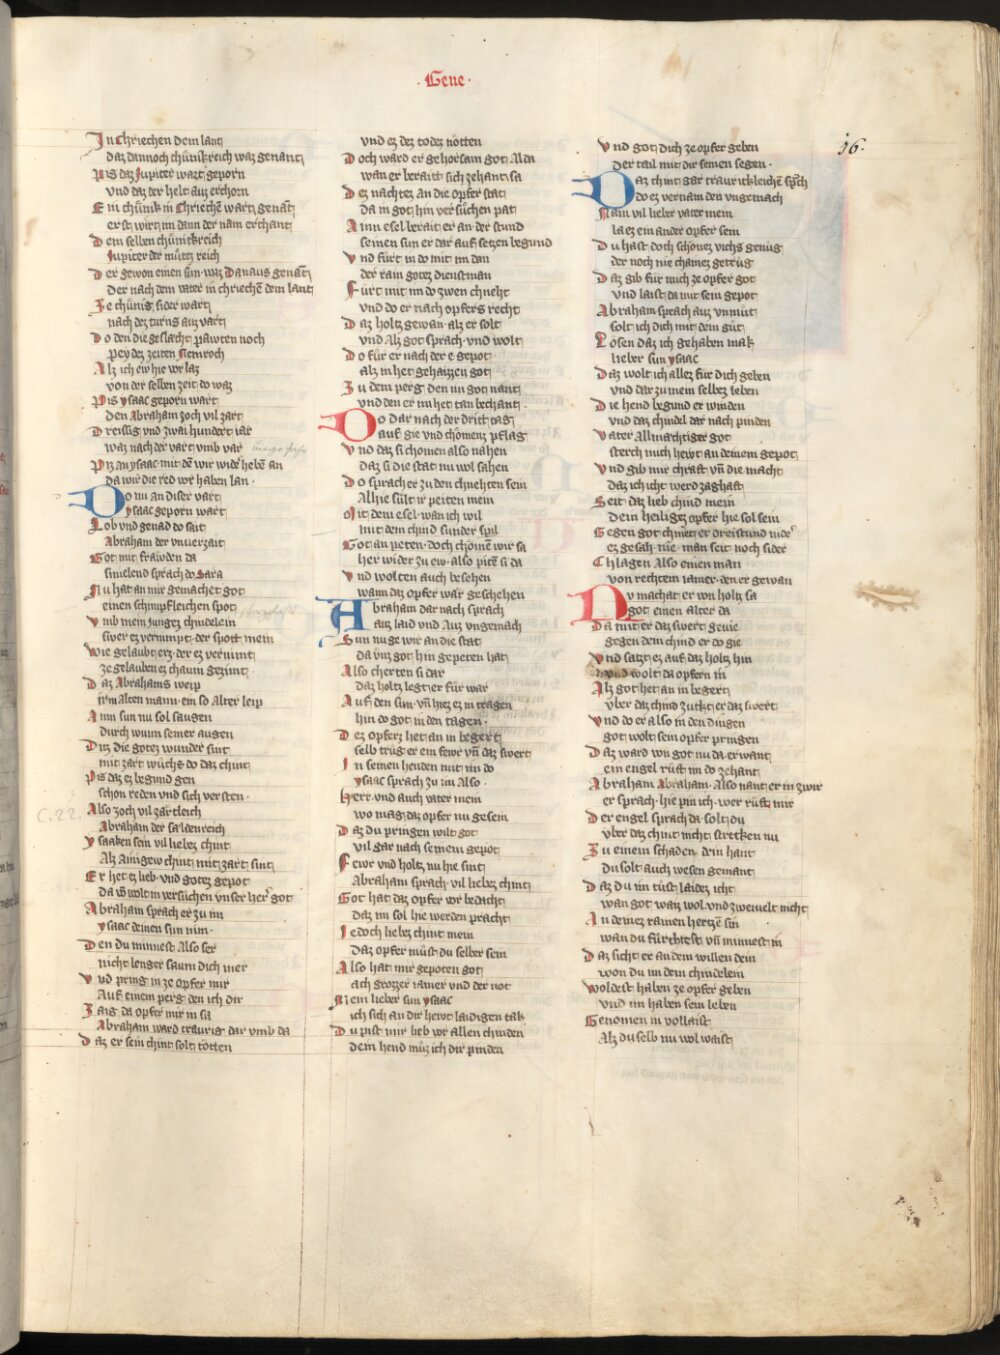 · Gene ·
36·
In Chriechen dem lant
daz dannoch chünikreich waz genant
Pis daz Jupiter wart geporn
vnd daz der helt auz erchorn
Ein chünik in Chrieche wart genant
erst wirt im dann der nam erchant
Dem selben chünickreich
Jupiter der mütez reich
Der gewon einen sun waz Danaus genāt
Der nach dem vater in chriechē dem lant
Ze chünig sider wart
nach dez turns auz vart
Do den die geslächt pawten noch
pey dez zeiten Nemroch
Alz ich ew hie vor laz
von der selben zeit do waz
Pis ysaac geporn wart
Den Abraham zoch vil zart
Dreissig vnd zwai hundert iar
waz nach der vart vmb var
Piz an ysaac mit dē wir wider hebē an
da wir die red wir haben lan ·
Do nu an diser vart
ysaac geporn wart
Lob vnd genad do sait
Abraham der vnuerzait
Got mit fräwden da
smielend sprach do Sara
Nu hat an mir gemachet got
einen schimpfleichen spot
Vmb mein jungez chindelein
swer ez vernimpt der spott mein
Wie gelaubt erz der ez vernimt
ze gelauben ez chaum gezimt ·
Daz Abrahams weip
irm alten mann ein so alter leip
Ainn sun nu sol saugen
durch wunn seiner augen
Ditz die gotez wunder sint
mit zart wuchs do daz chint
Pis daz ez begund gen
schon reden vnd sich versten ·
C. 22.
Also zoch vil zärtleich
Abraham der sældenreich
Ysaaken sein vil liebez chint
Alz Ainigew chint mit zart sint
Er het ez lieb vnd gotez gepot
da wolt in versuchen vnser herr got
Abraham sprach er zu im
ysaac deinen sun nim ·
Den du minnest also ser
nicht lenger saum dich mer
Vnd pring in ze opfer mir
Auf einem perg den ich dir
Zaig da opfer mir in sa
Abraham ward traurig dar vmb da
Daz er sein chint solt tötten
vnd ez dez todez nötten
Doch ward er gehorsam got Alda
wan er berait sich zehant sa
Dez nachtez an die opfer stat
da in got hin versüchen pat
Ainn esel berait er an der stund
seinen sun er dar auf setzen begund
Vnd fürt in do mit im dan
der rain gotez dienstman
Fürt mit im do zwen chneht
vnd do er nach opfers recht
Daz holtz gewan alz er solt
vnd Alz got sprach vnd wolt
Do für er nach der e gepot
alz in het gehaizzen got
Zu dem perg den im got nant
vnd den er im het tan bechant ·
Do dar nach der dritt tag
auf gie vnd chömenz pflag
Vnd daz si chomen also nahen
daz si die stat nu wol sahen
Do sprach er zu den chnehten sein
Alhie sült ir peiten mein
Mit dem esel wan ich wil
mit dem chind sunder spil
Got an peten doch chömē wir sa
her wider zu ew also pitē si da
Vnd wolten auch besehen
wann daz opfer wär geschehen
Abraham dar nach sprach
auz laid vnd Auz vngemach
Sun nu ge wir an die stat
da vnz got hin gepeten hat
Also cherten si dar
daz holtz legt er für war
Auf den sun vn hiez ez in tragen
hin do got in den tagen ·
Dez opferz het an in begert
selb trüg er ein fewr vn daz swert
In seinen henden mit im do
ysaac sprach zu im Also ·
Herr vnd auch vater mein
wo mag daz opfer nu gesein
Daz du pringen wilt got
vil gar nach seinem gepot
Fewr vnd holtz nu hie sint
Abraham sprach vil liebez chint
Got hat daz opfer vor bedacht
Daz im sol hie werden pracht
Iedoch liebez chint mein
Daz opfer müst du selber sein
Also hat mir gepoten got
ach grozzer iamer vnd der not
Mein lieber sun ysaac
ich sich an dir hewt laidigen tak
Du pist mir lieb vor allen chinden
dein hend müz ich dir pinden
Vnd got dich ze opfer geben
Der tail mit dir seinen segen ·
Daz chint gar traurickleichē sp͛ch
Do ez vernam den vngemach
Nain vil lieber vater mein
la ez ein ander opfer sein
Du hast doch schönez vichs genüg
der noch nie chainez getrüg
Daz gib für mich ze opfer got
vnd laist da mit sein gepot
Abraham sprach auz vnmüt
solt ich dich mit dem güt
Losen daz ich gehaben mak
lieber sun ysaac
Daz wolt ich allez für dich geben
vnd dar zu mein selbez leben
Die hend begund er winden
vnd daz chindel dar nach pinden
Vater Allmächtiger got
sterch mich hewt an deinem gepot
Vnd gib mir chraft vn die macht
daz ich icht werd zaghaft
Seit daz lieb chind mein
Dein heiligez opfer hie sol sein
Gegen got chniet er dreistund nider
ez gesah nie man seit noch sider
Chlagen Also einen man
von rechtem iamer den er gewan
Nv machat er von holtz sa
got einen alter da
Da mit er daz swert gevie
gegen dem chind er do gie
Vnd satzt ez auf daz holtz hin
vnd wolt da opfern in
Alz got het an in begert
vber daz chind zukt er daz swert
Vnd do er also in den dingen
got wolt sein opfer pringen
Daz ward von got nu da erwant
ein engel rüft im do zehant
Abraham Abraham · Also nant er in zwir
er sprach hie pin ich wer rüft mir
Der engel sprach da solt du
vber daz chint nicht strecken nu
Zu einem schaden dein hant
Du solt auch wesen gemant
Daz du im tüst laidez icht
wan got waiz wol vnd zweiuelt nicht
An deinez rainen hertzē sin
wan du fürchtest vn minnest in
Daz sicht er an dem willen dein
won du im dein chindelein
Woldest haben ze opfer geben
vnd im haben sein leben
Genomen in vollaist
Alz du selb nu wol waist